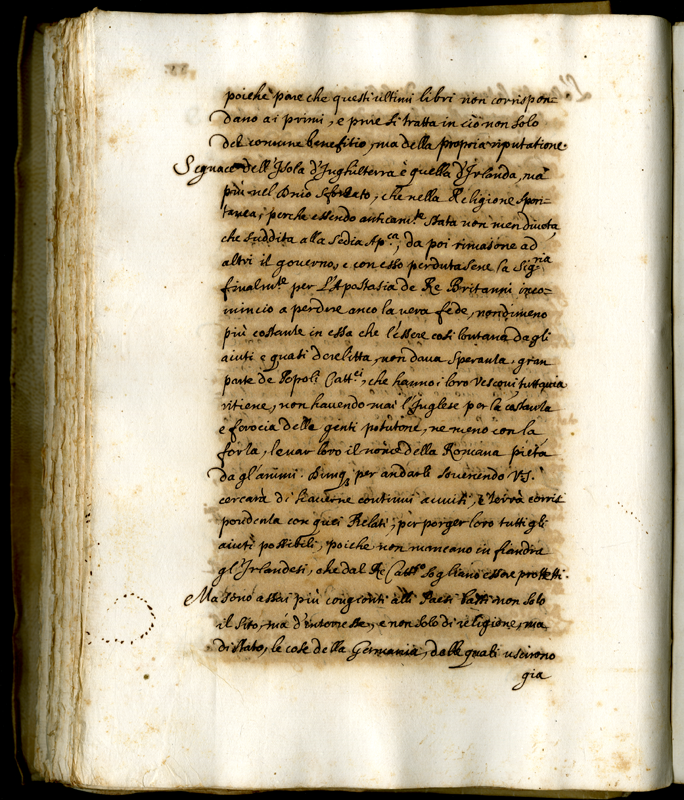 poiche pare che questi ultimi libri non corrispon-
dano ai primi, e pure si tratta in ciò non solo
del comune benefitio, ma della propria riputatione.
Seguace dell'Isola d'Inghilterra è quella d'Irlanda, ma
più nel Dnio sforzato, che nella Religione spon-
tanea; perche essendo anticam.te stata non men divota,
che suddita alla Sedia Ap.ca, da poi rimasone ad
altri il governo, e con esso perdutasene la Sig.ria
finalm.te per l'Apostasia de Re Britanni inco-
minciò a perdere anco la vera fede, nondimeno
più costante in essa che l'essere così lontana dagli
aiuti e quasi derelitta, non dava speranza, gran
parte de Popoli Catt.ci, che hanno i loro Vescovi tuttavia
ritiene, non havendo mai l'Inglese per la costanza
e ferocia delle genti potutone, ne meno con la
forza, levar loro il nome della Romana pietà
da gl'animi. Dunq. per andarli sovenendo V.S.
cercarà di haverne continui avvisi, e terrà corris-
pondenza con quei Prelati, per porger loro tutti gli
aiuti possibili, poiche non mancano in fiandra
gl'Irlandesi, che dal Re Catt.co sogliano essere protetti.
Ma sono assai più congionti alli Paesi bassi non solo
il sito, ma d'interesse, e non solo di religione, ma
di stato, le cose della Germania, dalle quali uscirono
gia